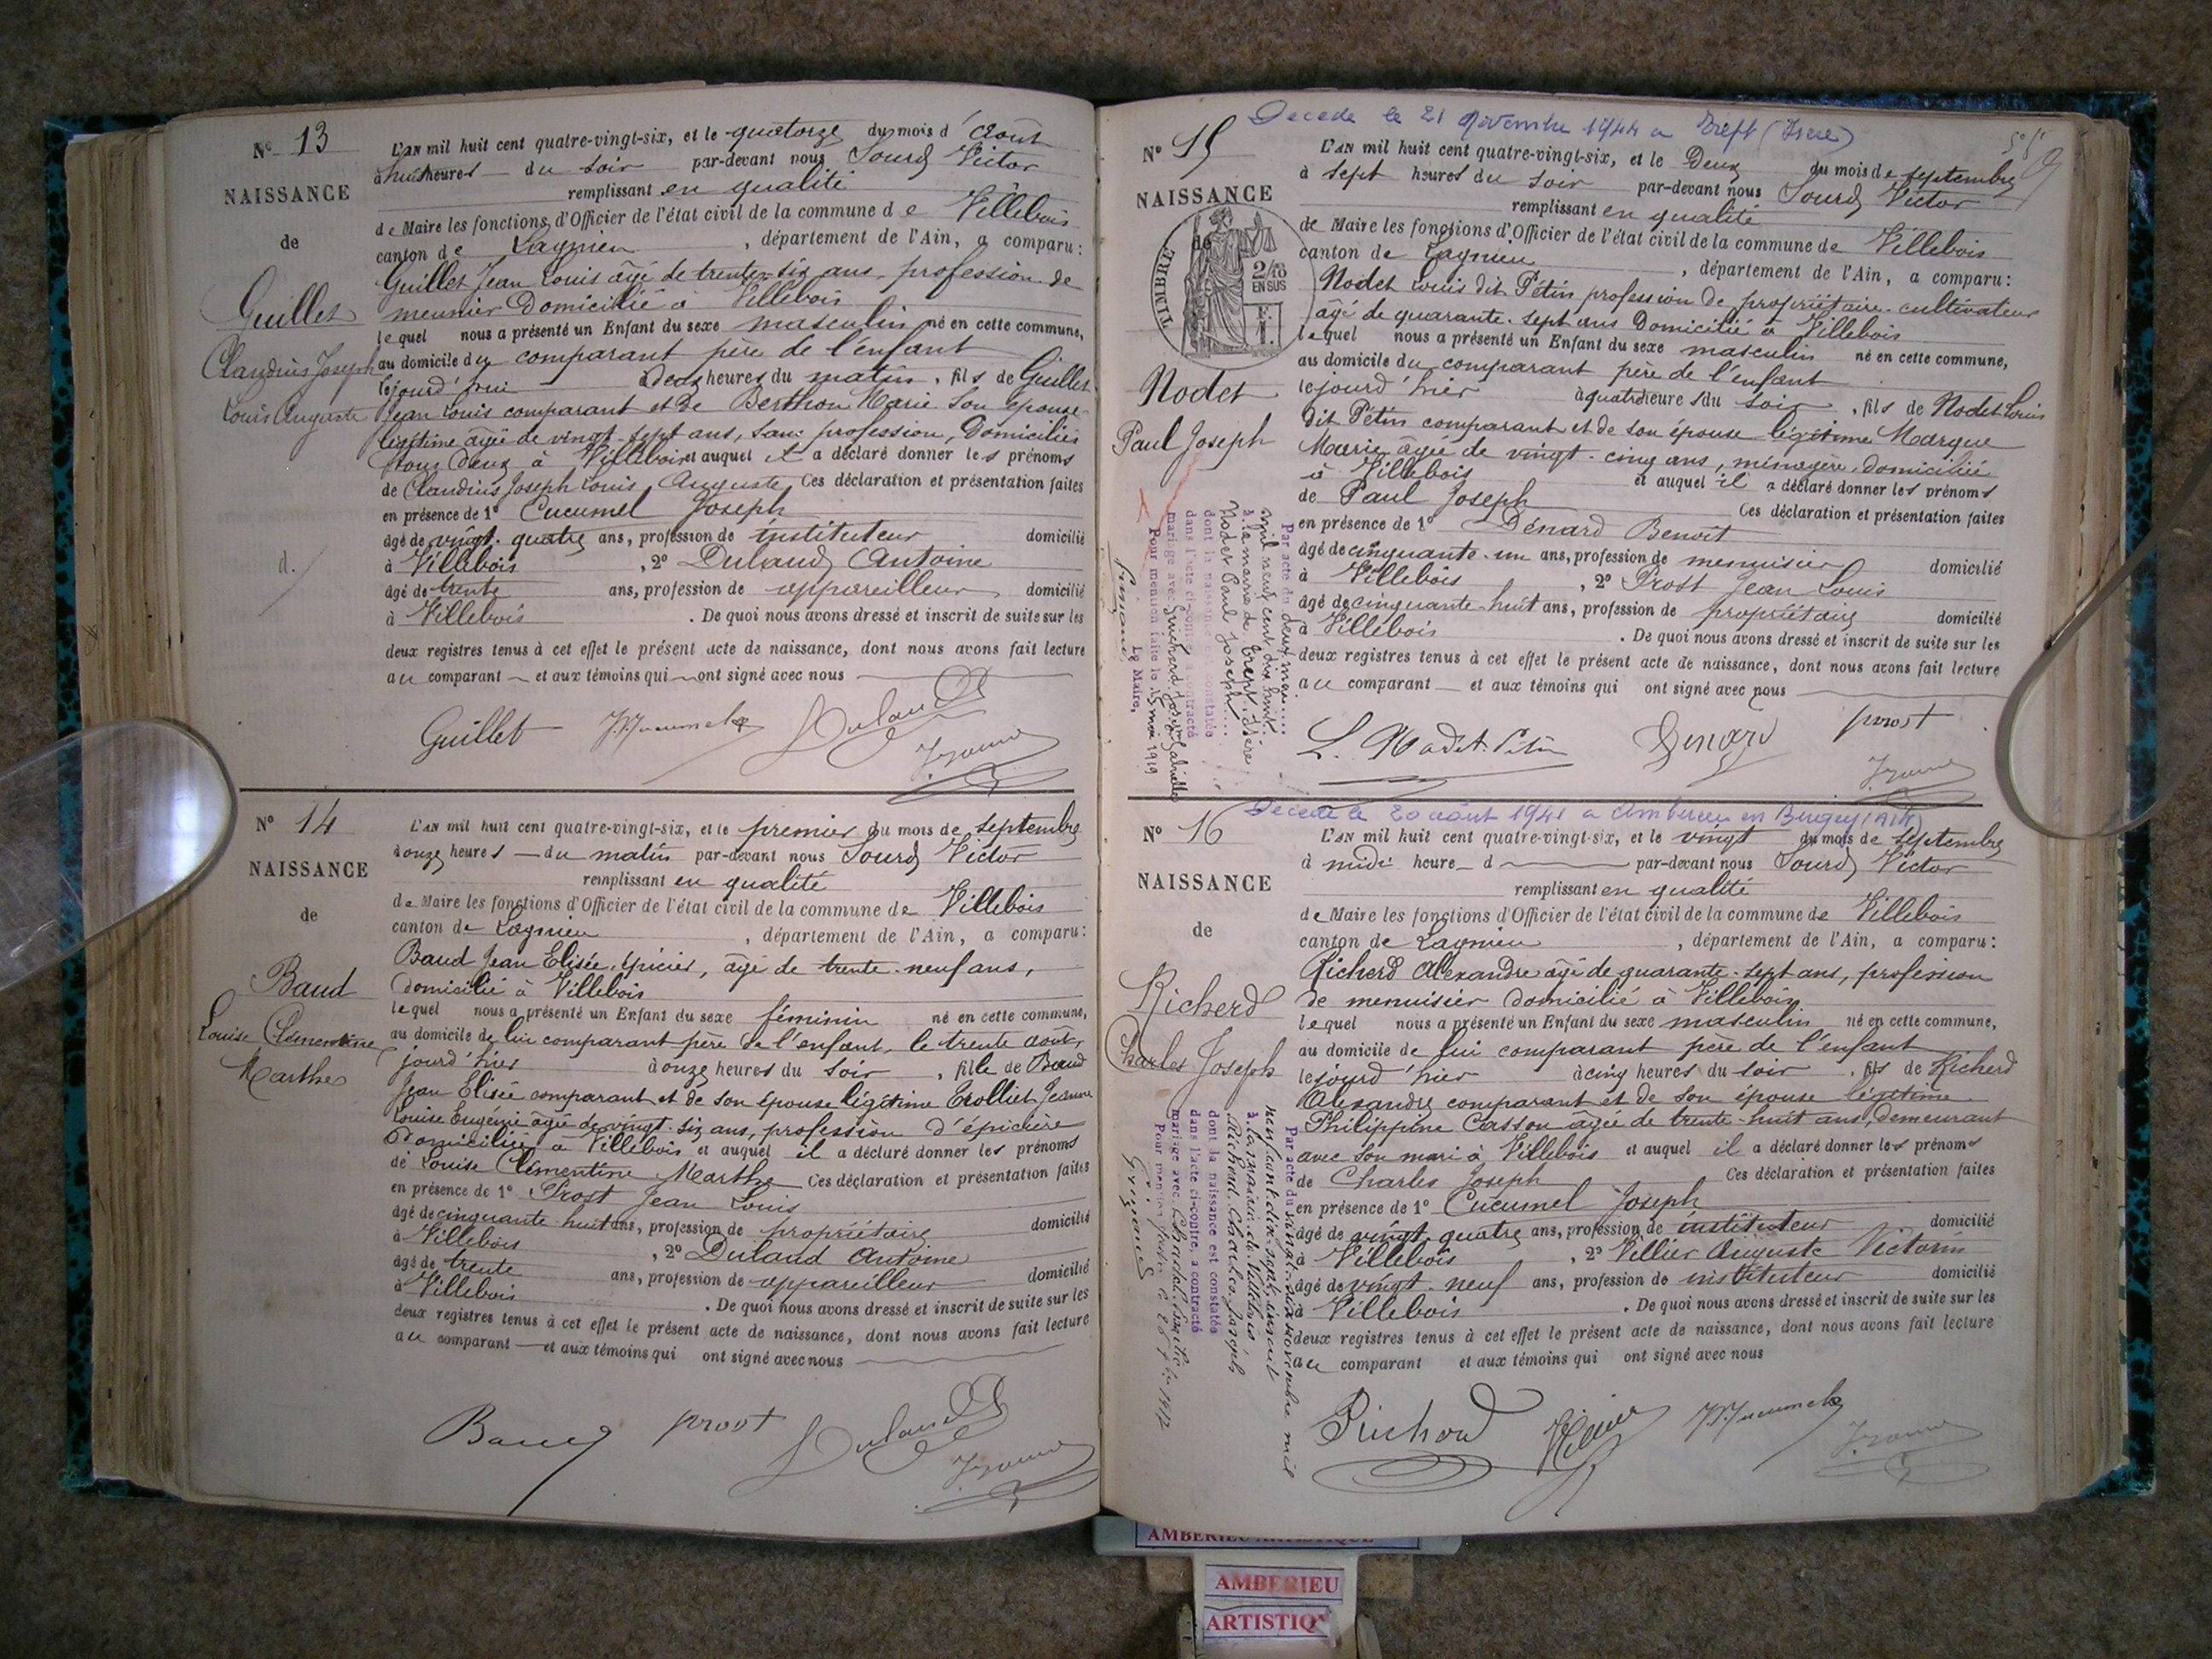 N° 13
NAISSANCE
de
Guillet
Claudius Joseph
Louis Auguste
d.
L'AN mil huit cent quatre-vingt-six, et le quatorze du mois d'août
à huit heures du soir par-devant nous Sourd Victor
remplissant en qualité
de Maire les fonctions d'Officier de l'état civil de la commune de Villebois
canton de Lagnieu, département de l'Ain, a comparu:
Guillet Jean Louis âgé de trente-six ans, profession de
meunier Domicilié à Villebois
lequel nous a présenté un Enfant du sexe masculin né en cette commune,
au domicile du comparant père de l'enfant
le jourd'hui à deux heures du matin, fils de Guillet
Jean Louis comparant et de Berthon Marie son épouse
légitime âgée de vingt-sept ans, sans profession, Domiciliés
tous deux à Villebois et auquel il a déclaré donner les prénoms
de Claudius Joseph Louis Auguste Ces déclaration et présentation faites
en présence de 1° Cucumel Joseph
âgé de vingt-quatre ans, profession de instituteur domicilié
à Villebois, 2° Dulaud Antoine
âgé de trente ans, profession de appareilleur domicilié
à Villebois. De quoi nous avons dressé et inscrit de suite sur les
deux registres tenus à cet effet le présent acte de naissance, dont nous avons fait lecture
au comparant et aux témoins qui ont signé avec nous
Guillet Dulaud
N° 14
NAISSANCE
de
Baud
Louise Clémentine
Marthe
L'AN mil huit cent quatre-vingt-six, et le premier du mois de septembre
à onze heures du matin par-devant nous Sourd Victor
remplissant en qualité
de Maire les fonctions d'Officier de l'état civil de la commune de Villebois
canton de Lagnieu, département de l'Ain, a comparu:
Baud Jean Elisée, épicier, âgé de trente-neuf ans,
domicilié à Villebois
lequel nous a présenté un Enfant du sexe féminin né en cette commune,
au domicile de lui comparant père de l'enfant, le trente août,
jourd'hier à onze heures du soir, fille de Baud
Jean Elisée comparant et de son épouse légitime Trolliet Jeanne
Louise Eugénie âgée de vingt-six ans, profession d'épicière
domiciliée à Villebois et auquel il a déclaré donner les prénoms
de Louise Clémentine Marthe Ces déclaration et présentation faites
en présence de 1° Prost Jean Louis
âgé de cinquante-huit ans, profession de propriétaire domicilié
à Villebois, 2° Dulaud Antoine
âgé de trente ans, profession de appareilleur domicilié
à Villebois. De quoi nous avons dressé et inscrit de suite sur les
deux registres tenus à cet effet le présent acte de naissance, dont nous avons fait lecture
au comparant et aux témoins qui ont signé avec nous
Baud prost Dulaud
Décédé le 21 Novembre 1944 a Trept (Isère)
N° 15
NAISSANCE
de
TIMBRE
2/10
EN SUS
Nodet
Paul Joseph
L'AN mil huit cent quatre-vingt-six, et le Deux du mois de septembre
à sept heures du soir par-devant nous Sourd Victor
remplissant en qualité
de Maire les fonctions d'Officier de l'état civil de la commune de Villebois
canton de Lagnieu, département de l'Ain, a comparu:
Nodet Louis dit Pétin profession de propriétaire-cultivateur
âgé de quarante-sept ans Domicilié à Villebois
lequel nous a présenté un Enfant du sexe masculin né en cette commune,
au domicile du comparant père de l'enfant
le jourd'hier à quatre heures du soir, fils de Nodet Louis
dit Pétin comparant et de son épouse légitime Marque
Marie âgée de vingt-cinq ans, ménagère, domiciliée
à Villebois et auquel il a déclaré donner les prénoms
de Paul Joseph Ces déclaration et présentation faites
en présence de 1° Dénard Benoît
âgé de cinquante-un ans, profession de menuisier domicilié
à Villebois, 2° Prost Jean Louis
âgé de cinquante-huit ans, profession de propriétaire domicilié
à Villebois. De quoi nous avons dressé et inscrit de suite sur les
deux registres tenus à cet effet le présent acte de naissance, dont nous avons fait lecture
au comparant et aux témoins qui ont signé avec nous
Par acte du deux mai
mil neuf cent dix huit
à la mairie de Trept Isère
Nodet Paul Joseph
dont la naissance est constatée
dans l'acte ci-contre a contracté
mariage avec Guichard Joséphine Gabrielle
Pour mention faite le 15 mai 1919
Le Maire,
L. Nodet-Pétin Dénard prost
Décédé le 20 août 1941 a Ambérieu en Bugey (Ain)
N° 16
NAISSANCE
de
Richerd
Charles Joseph
L'AN mil huit cent quatre-vingt-six, et le vingt du mois de septembre
à midi heure d par-devant nous Sourd Victor
remplissant en qualité
de Maire les fonctions d'Officier de l'état civil de la commune de Villebois
canton de Lagnieu, département de l'Ain, a comparu:
Richerd Alexandre âgé de quarante-sept ans, profession
de menuisier domicilié à Villebois
lequel nous a présenté un Enfant du sexe masculin né en cette commune,
au domicile de lui comparant père de l'enfant
le jourd'hier à cinq heures du soir, fils de Richerd
Alexandre comparant et de son épouse légitime
Philippine Casson âgée de trente-huit ans, demeurant
avec son mari à Villebois et auquel il a déclaré donner les prénoms
de Charles Joseph Ces déclaration et présentation faites
en présence de 1° Cucumel Joseph
âgé de vingt-quatre ans, profession de instituteur domicilié
à Villebois, 2° Vellier Auguste Victorin
âgé de vingt-neuf ans, profession de instituteur domicilié
à Villebois. De quoi nous avons dressé et inscrit de suite sur les
deux registres tenus à cet effet le présent acte de naissance, dont nous avons fait lecture
au comparant et aux témoins qui ont signé avec nous
Par acte du vingt-six novembre mil
neuf cent dix-sept, inscrit
à la mairie de Villebois
Richerd Charles Joseph
dont la naissance est constatée
dans l'acte ci-contre, a contracté
mariage avec
Pour mention
Richerd
AMBERIEU ARTISTIQUE
AMBERIEU
ARTISTIQ